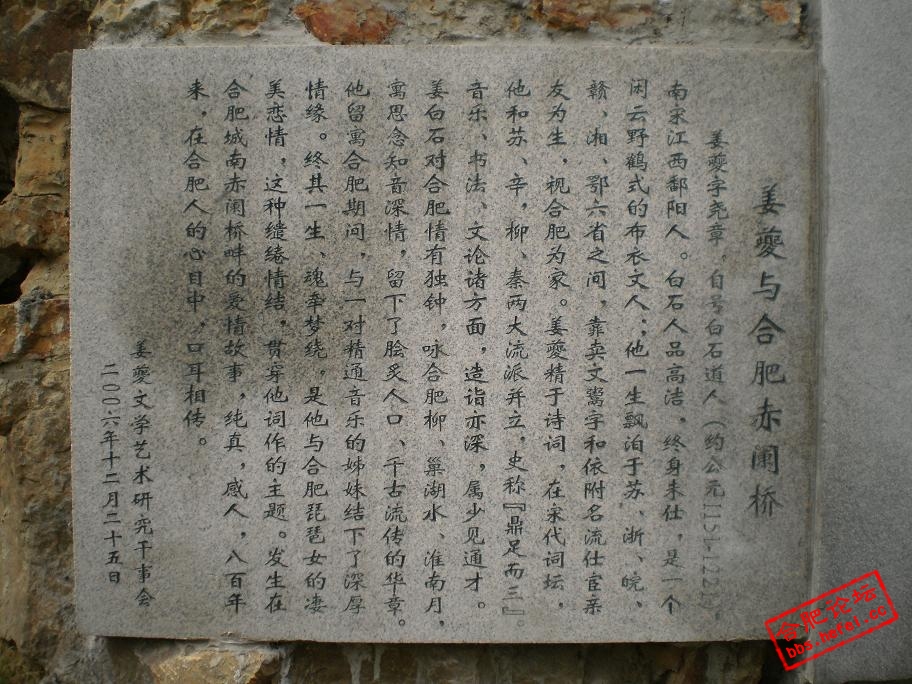 姜夔与合肥赤阑桥
姜夔字尧章，自号白石道人（约公元1151-1222），
南宋江西鄱阳人。白石人品高洁，终身未仕，是一个
闲云野鹤式的布衣文人；他一生飘泊于苏、浙、皖、
赣、湘、鄂六省之间，靠卖文鬻字和依附名流仕宦亲
友为生，视合肥为家。姜夔精于诗词，在宋代词坛，
他和苏、辛，柳、秦两大流派并立，史称『鼎足而三』。
音乐、书法、文论诸方面，造诣亦深，属少见通才。
姜白石对合肥情有独钟，咏合肥柳、巢湖水、淮南月，
寓思念知音深情，留下了脍炙人口、千古流传的华章。
他留寓合肥期间，与一对精通音乐的姊妹结下了深厚
情缘。终其一生、魂牵梦绕，是他与合肥琵琶女的凄
美恋情，这种缱绻情结，贯穿他词作的主题。发生在
合肥城南赤阑桥畔的爱情故事，纯真，感人，八百年
来，在合肥人的心目中，口耳相传。
姜夔文学艺术研究干事会
二〇〇六年十二月二十五日
合肥论坛
bbs.hefei.cc